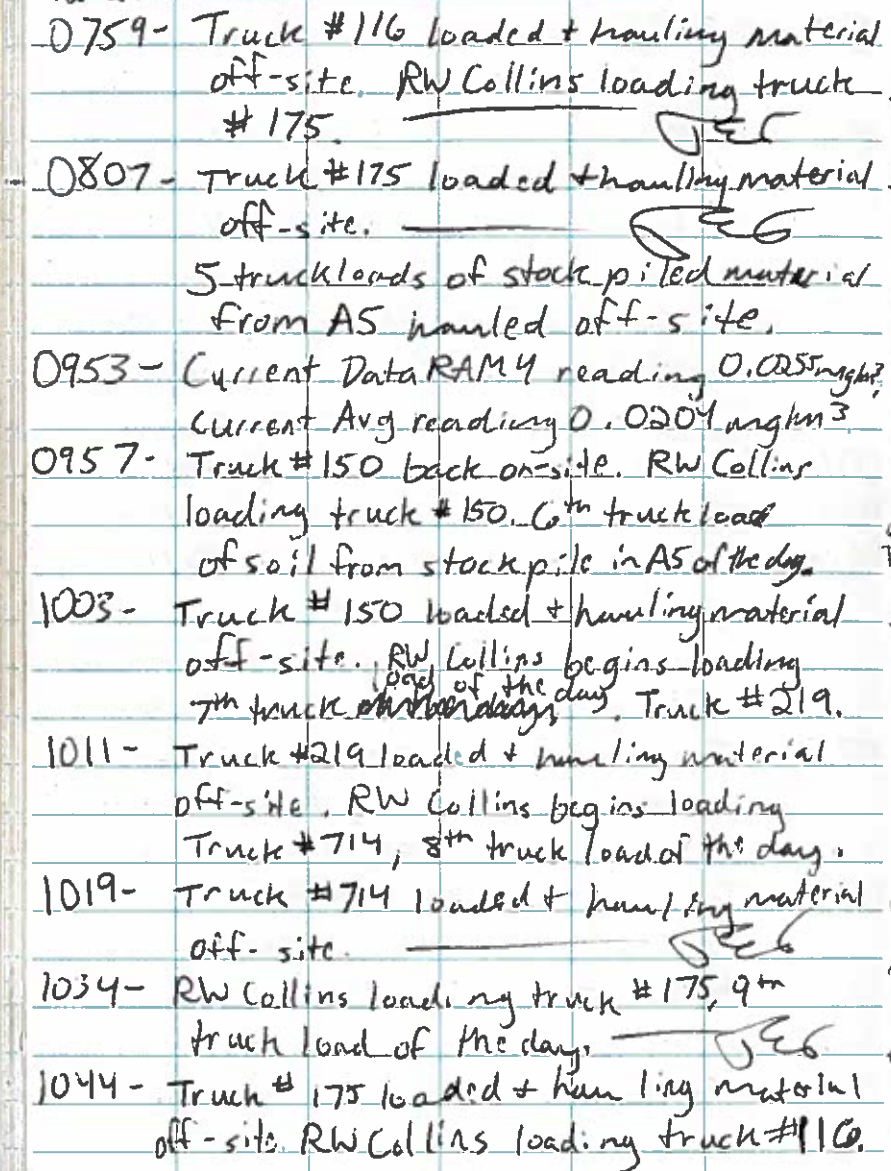 0759- Truck #116 loaded + hauling material
off-site. RW Collins loading truck
#175.
0807- Truck #175 loaded + hauling material
off-site.
5 truckloads of stock piled material
from A5 hauled off-site.
0953- Current DataRAM4 reading 0.0255 mg/m3,
current Avg reading 0.0204 mg/m3
0957- Truck #150 back on-site. RW Collins
loading truck #150. 6th truck load
of soil from stockpile in A5 of the day.
1003- Truck # 150 loaded + hauling material
off-site. RW Collins begins loading
7th truck load of the day. Truck #219.
1011- Truck #219 loaded + hauling material
off-site. RW Collins begins loading
Truck #714, 8th truck load of the day.
1019- Truck #714 loaded + hauling material
off-site.
1034- RW Collins loading truck #175, 9th
truck load of the day.
1044- Truck # 175 loaded + hauling material
off-site. RW Collins loading truck #116.